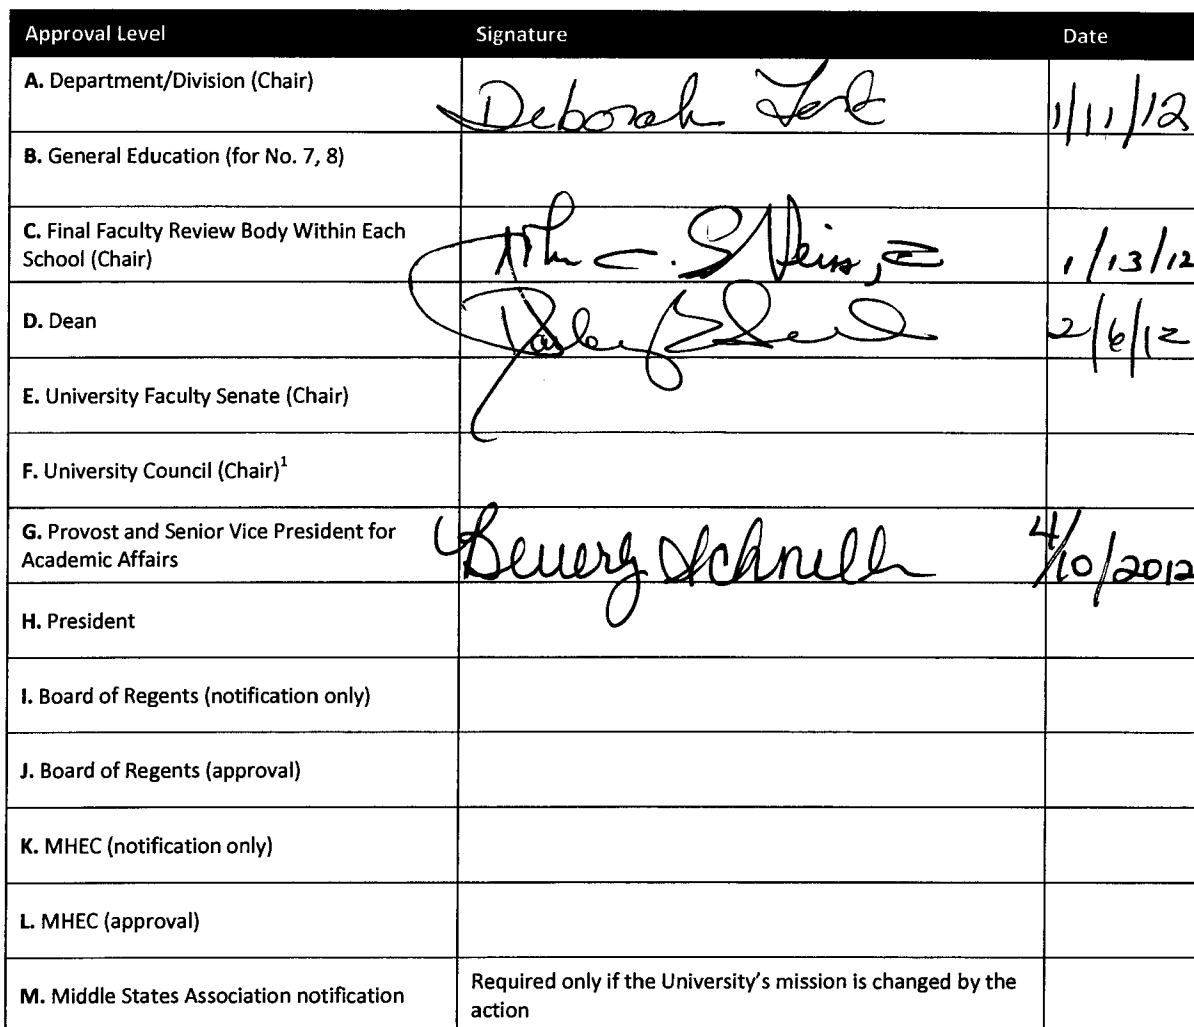 Approval Level Signature Date
A. Department/Division (Chair) Deborah 1/11/12
B. General Education (for No. 7, 8)
C. Final Faculty Review Body Within Each
School (Chair) C. Weiss 1/13/12
D. Dean 2/6/12
E. University Faculty Senate (Chair)
F. University Council (Chair)¹
G. Provost and Senior Vice President for
Academic Affairs Schnell 4/10/2012
H. President
I. Board of Regents (notification only)
J. Board of Regents (approval)
K. MHEC (notification only)
L. MHEC (approval)
M. Middle States Association notification Required only if the University's mission is changed by the
action